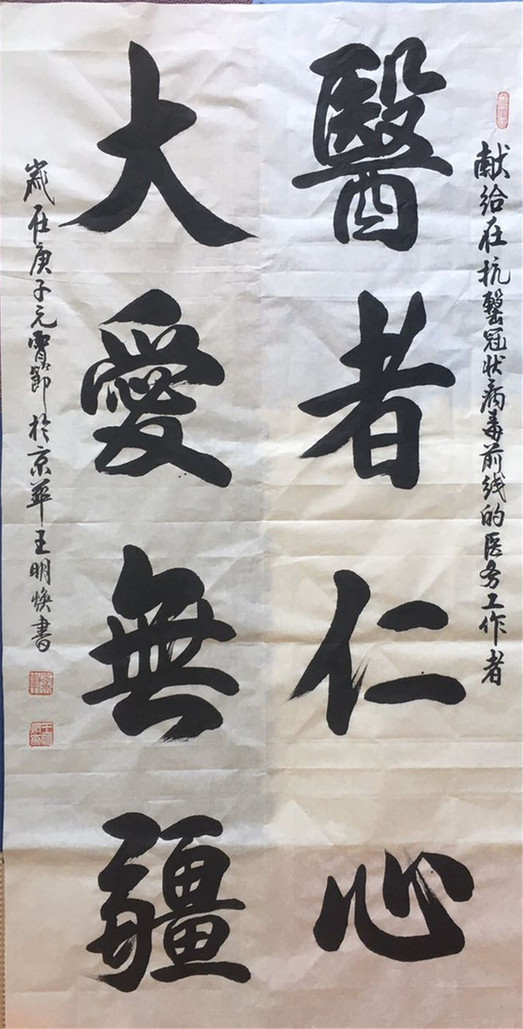 献给在抗击冠状病毒前线的医务工作者
醫者仁心
大愛無疆
歲在庚子元宵節於京華王明煥書